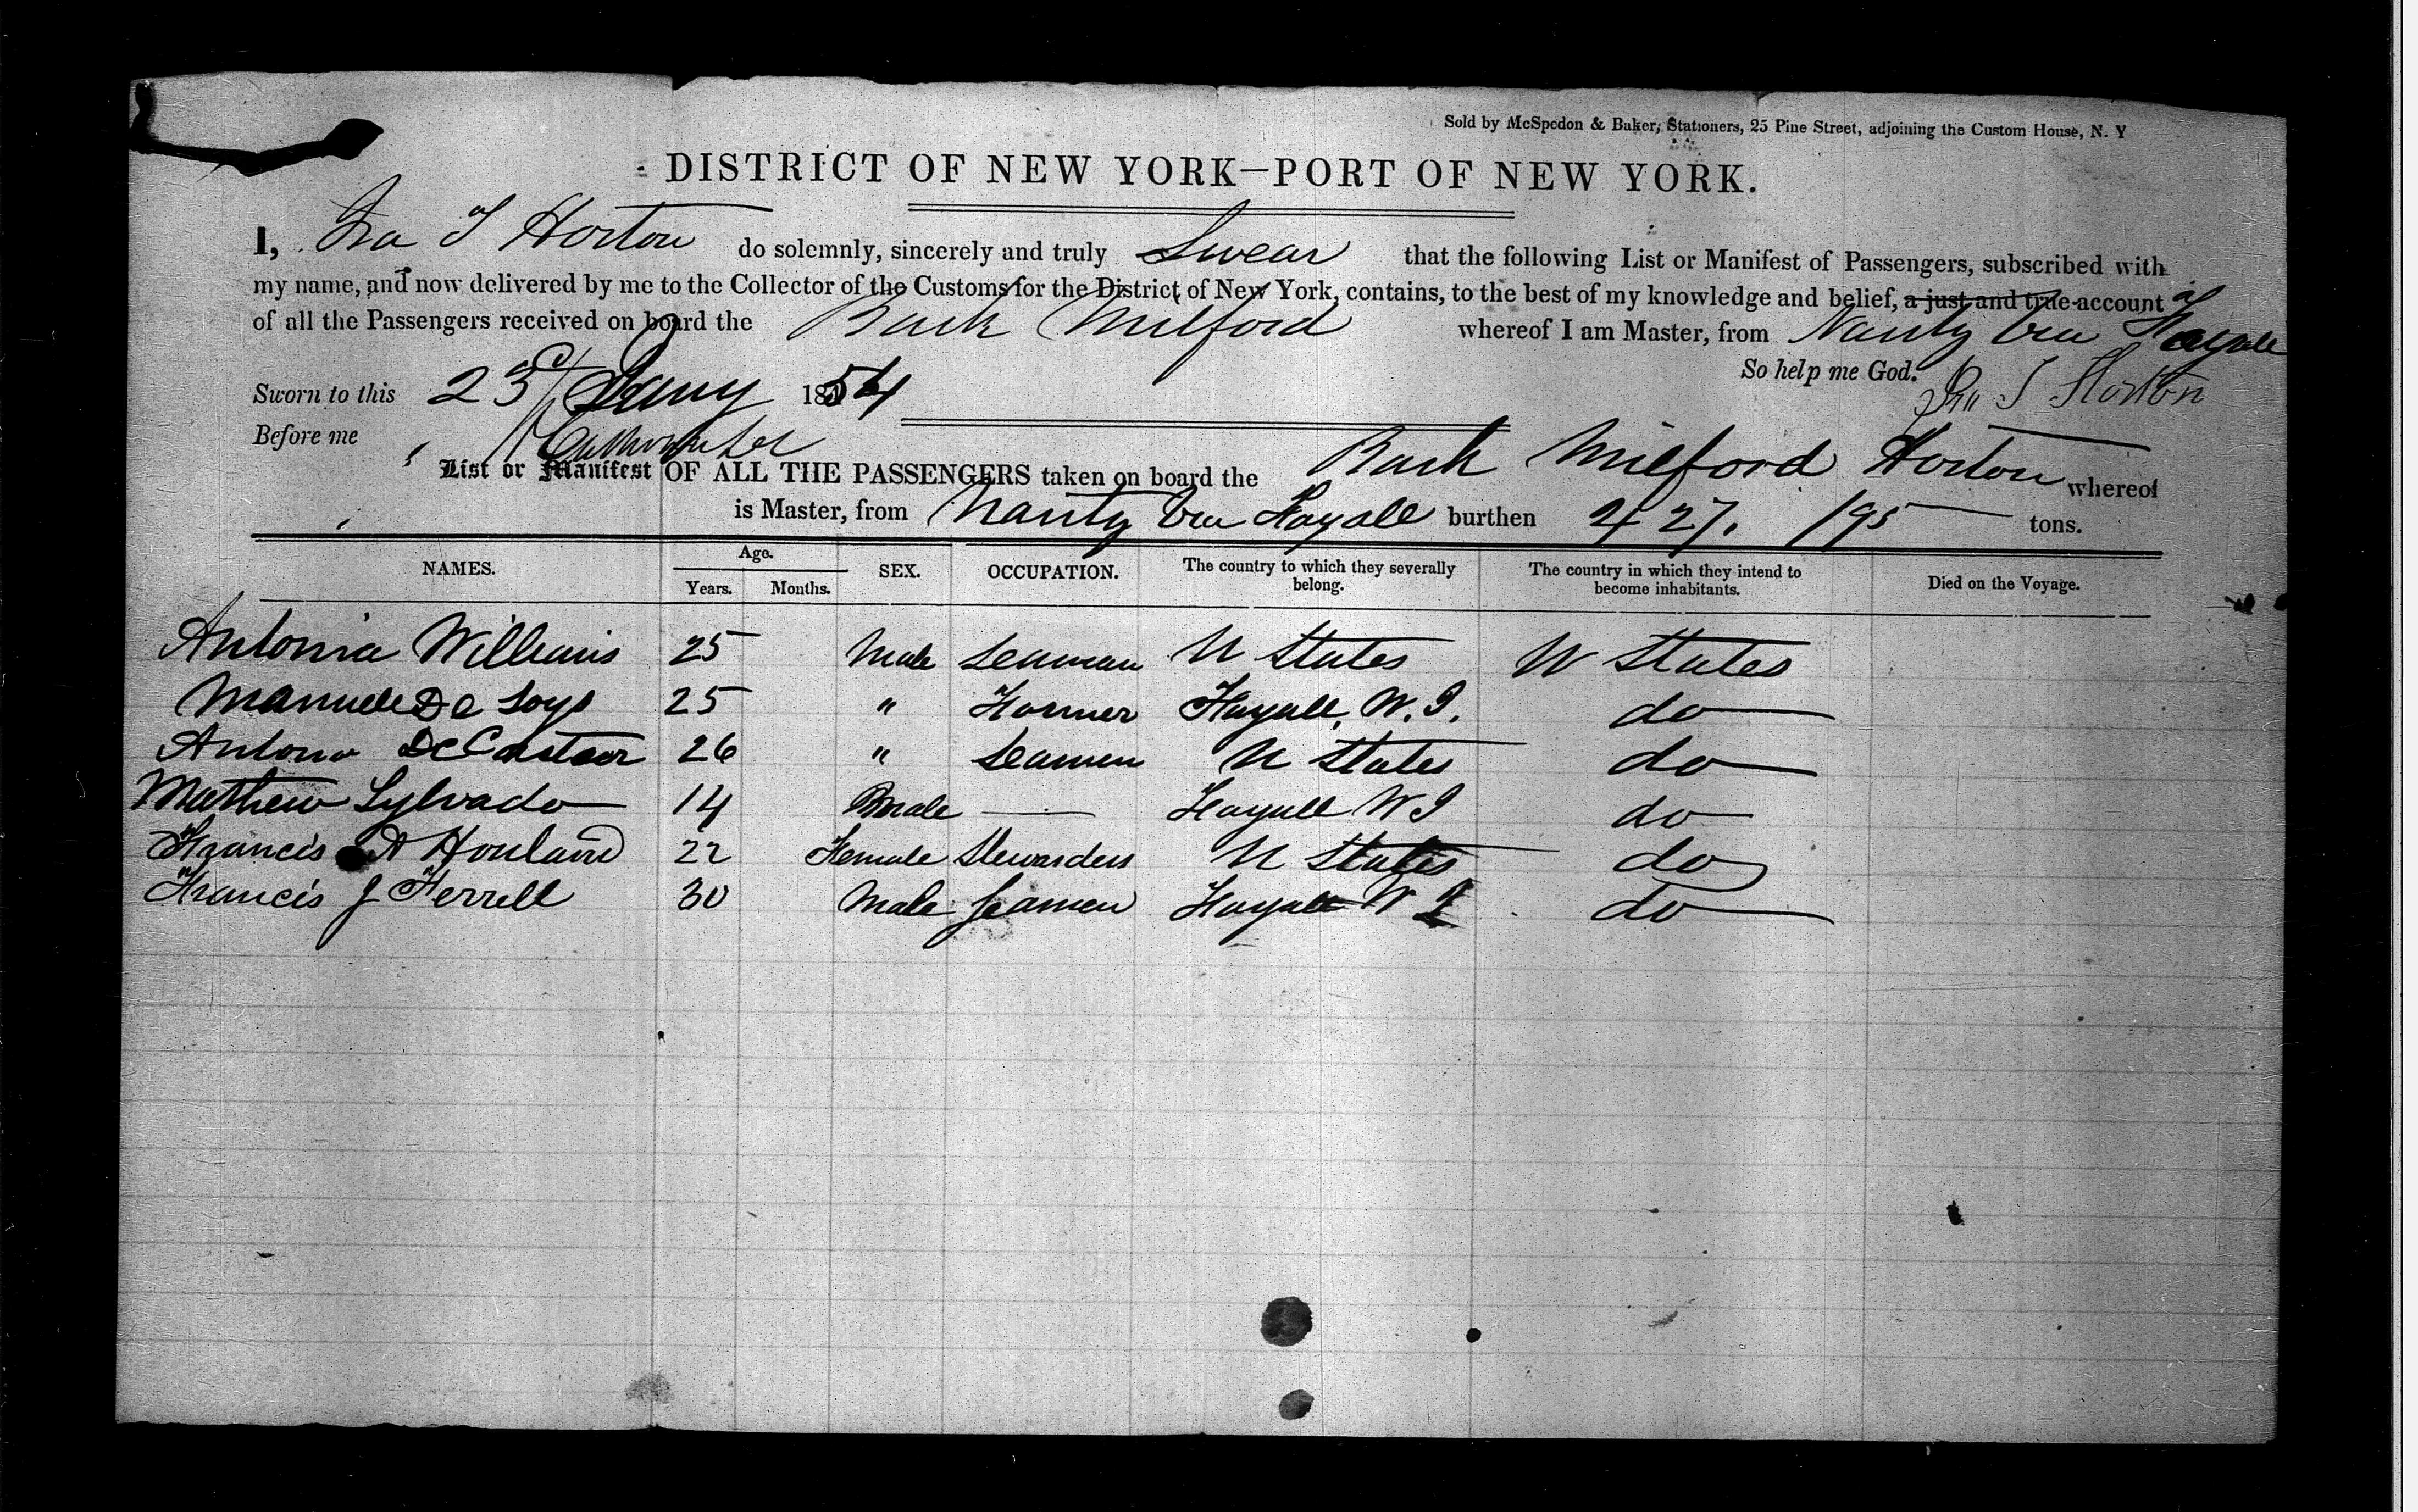 Sold by McSpedon & Baker, Stationers, 25 Pine Street, adjoining the Custom House, N. Y
DISTRICT OF NEW YORK—PORT OF NEW YORK.
I, Ira T Horton do solemnly, sincerely and truly Swear that the following List or Manifest of Passengers, subscribed with
my name, and now delivered by me to the Collector of the Customs for the District of New York, contains, to the best of my knowledge and belief, a just and true account
of all the Passengers received on board the Bark Milford whereof I am Master, from Nantz via Fayall
So help me God.
Sworn to this 23d Jany 1854 Ira T Horton
Before me
List or Manifest OF ALL THE PASSENGERS taken on board the Bark Milford Horton whereof
is Master, from Nantz via Fayall burthen 427. /95 tons.
NAMES. Age. Years. Months. SEX. OCCUPATION. The country to which they severally belong. The country in which they intend to become inhabitants. Died on the Voyage.
Antonia Williams 25 Male Seaman U States U States
Manuele De 25 " Farmer Fayall, W.I. do
Antono 26 " Seamen U States do
Mathew Sylvado 14 Male — Fayall W I do
Francis A Houland 22 Female Stewardess U States do
Francis J Ferrell 30 Male Seamen Fayall W I do